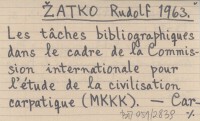 ŽATKO Rudolf 1963."
Les tâches bibliographiques
dans le cadre de la Commis-
sion internationale pour
l'étude de la civilisation
carpatique (MKKK). — Car-